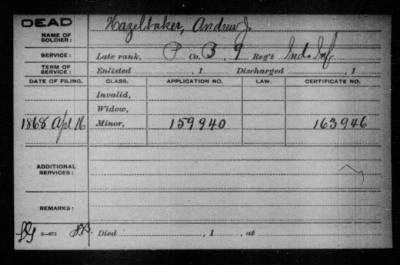 DEAD
NAME OF SOLDIER: Hazelbaker, Andrew J.
SERVICE: Late rank, P Co. B 9 Reg't Ind. Inf.
TERM OF SERVICE: Enlisted , 1 Discharged , 1
DATE OF FILING. CLASS. APPLICATION NO. LAW. CERTIFICATE NO.
Invalid,
Widow,
1868 Apl 16 Minor, 159940 163946
ADDITIONAL SERVICES:
REMARKS:
Died , 1 , at